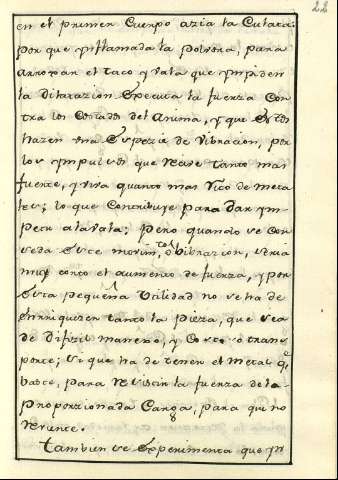 22
en el primer Cuerpo azia la Culata
por que ynflamada la Polvora, para
arrojar el taco y vala que ympiden
la dilatazion executa la fuerza con
tra los Costados del Anima, y que estos
hazen una espezie de vibracion, por
los ympulsos que recive tanto mas
fuerte, y viva quanto mas rico de meta
les; lo que contribuye para dar ym
petu a la vala; pero quando se con
ceda este movim.to o vibrazion, seria
muy corto el aumento de fuerza, y por
esta pequeña utilidad no se ha de
enrriquezer tanto la pieza, que sea
de dificil manexo, y costoso trans
porte; si que ha de tener el metal q.e
baste, para resistir la fuerza de la
proporzionada Carga, para que no
rebiente.
tambien se experimenta que